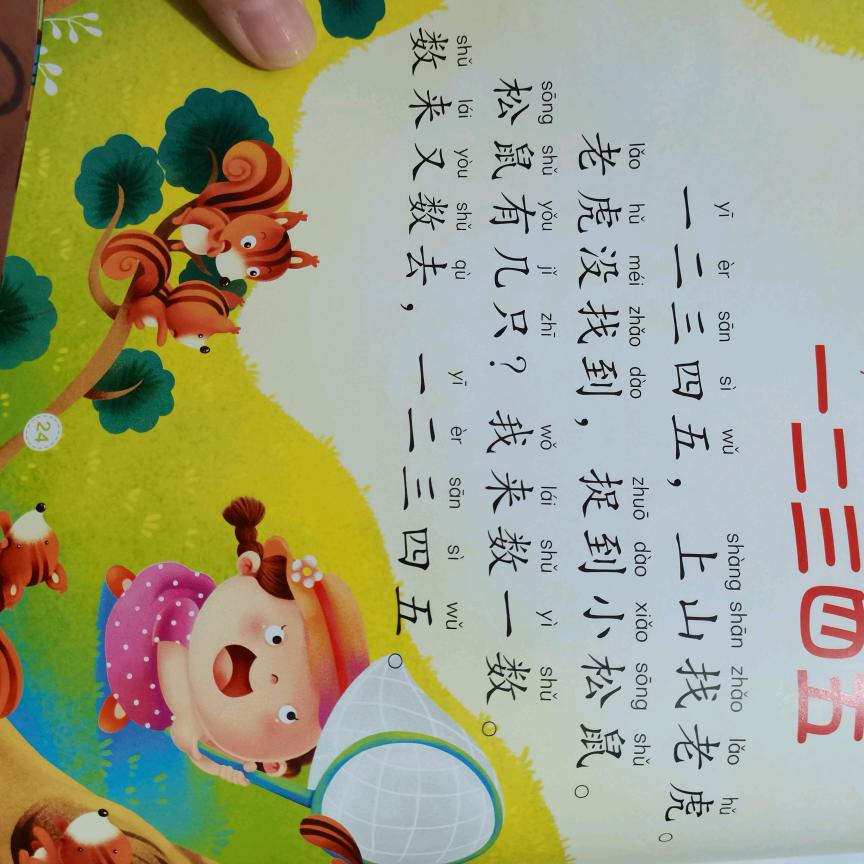 一二三四五
yī èr sān sì wǔ shàng shān zhǎo lǎo hǔ
一二三四五，上山找老虎。
lǎo hǔ méi zhǎo dào zhuō dào xiǎo sōng shǔ
老虎没找到，捉到小松鼠。
sōng shǔ yǒu jǐ zhī wǒ lái shǔ yì shǔ
松鼠有几只？我来数一数。
shǔ lái yòu shǔ qù yī èr sān sì wǔ
数来又数去，一二三四五。
24